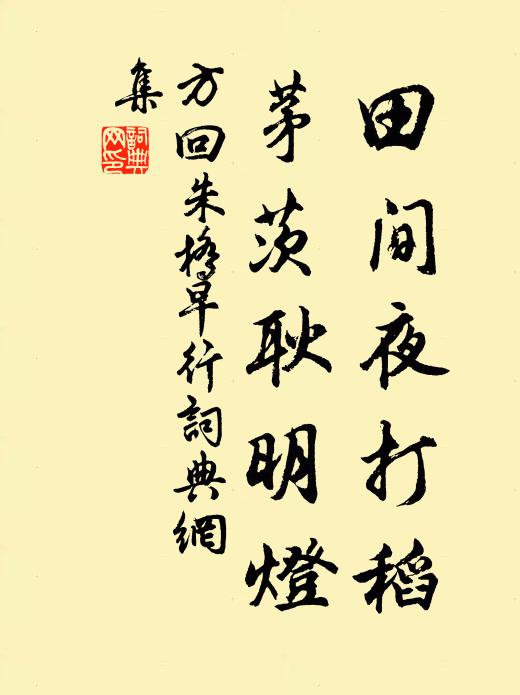 田間夜打稻
茅茨耿明燈
方回朱橋早行詞典網
集
詞典網印